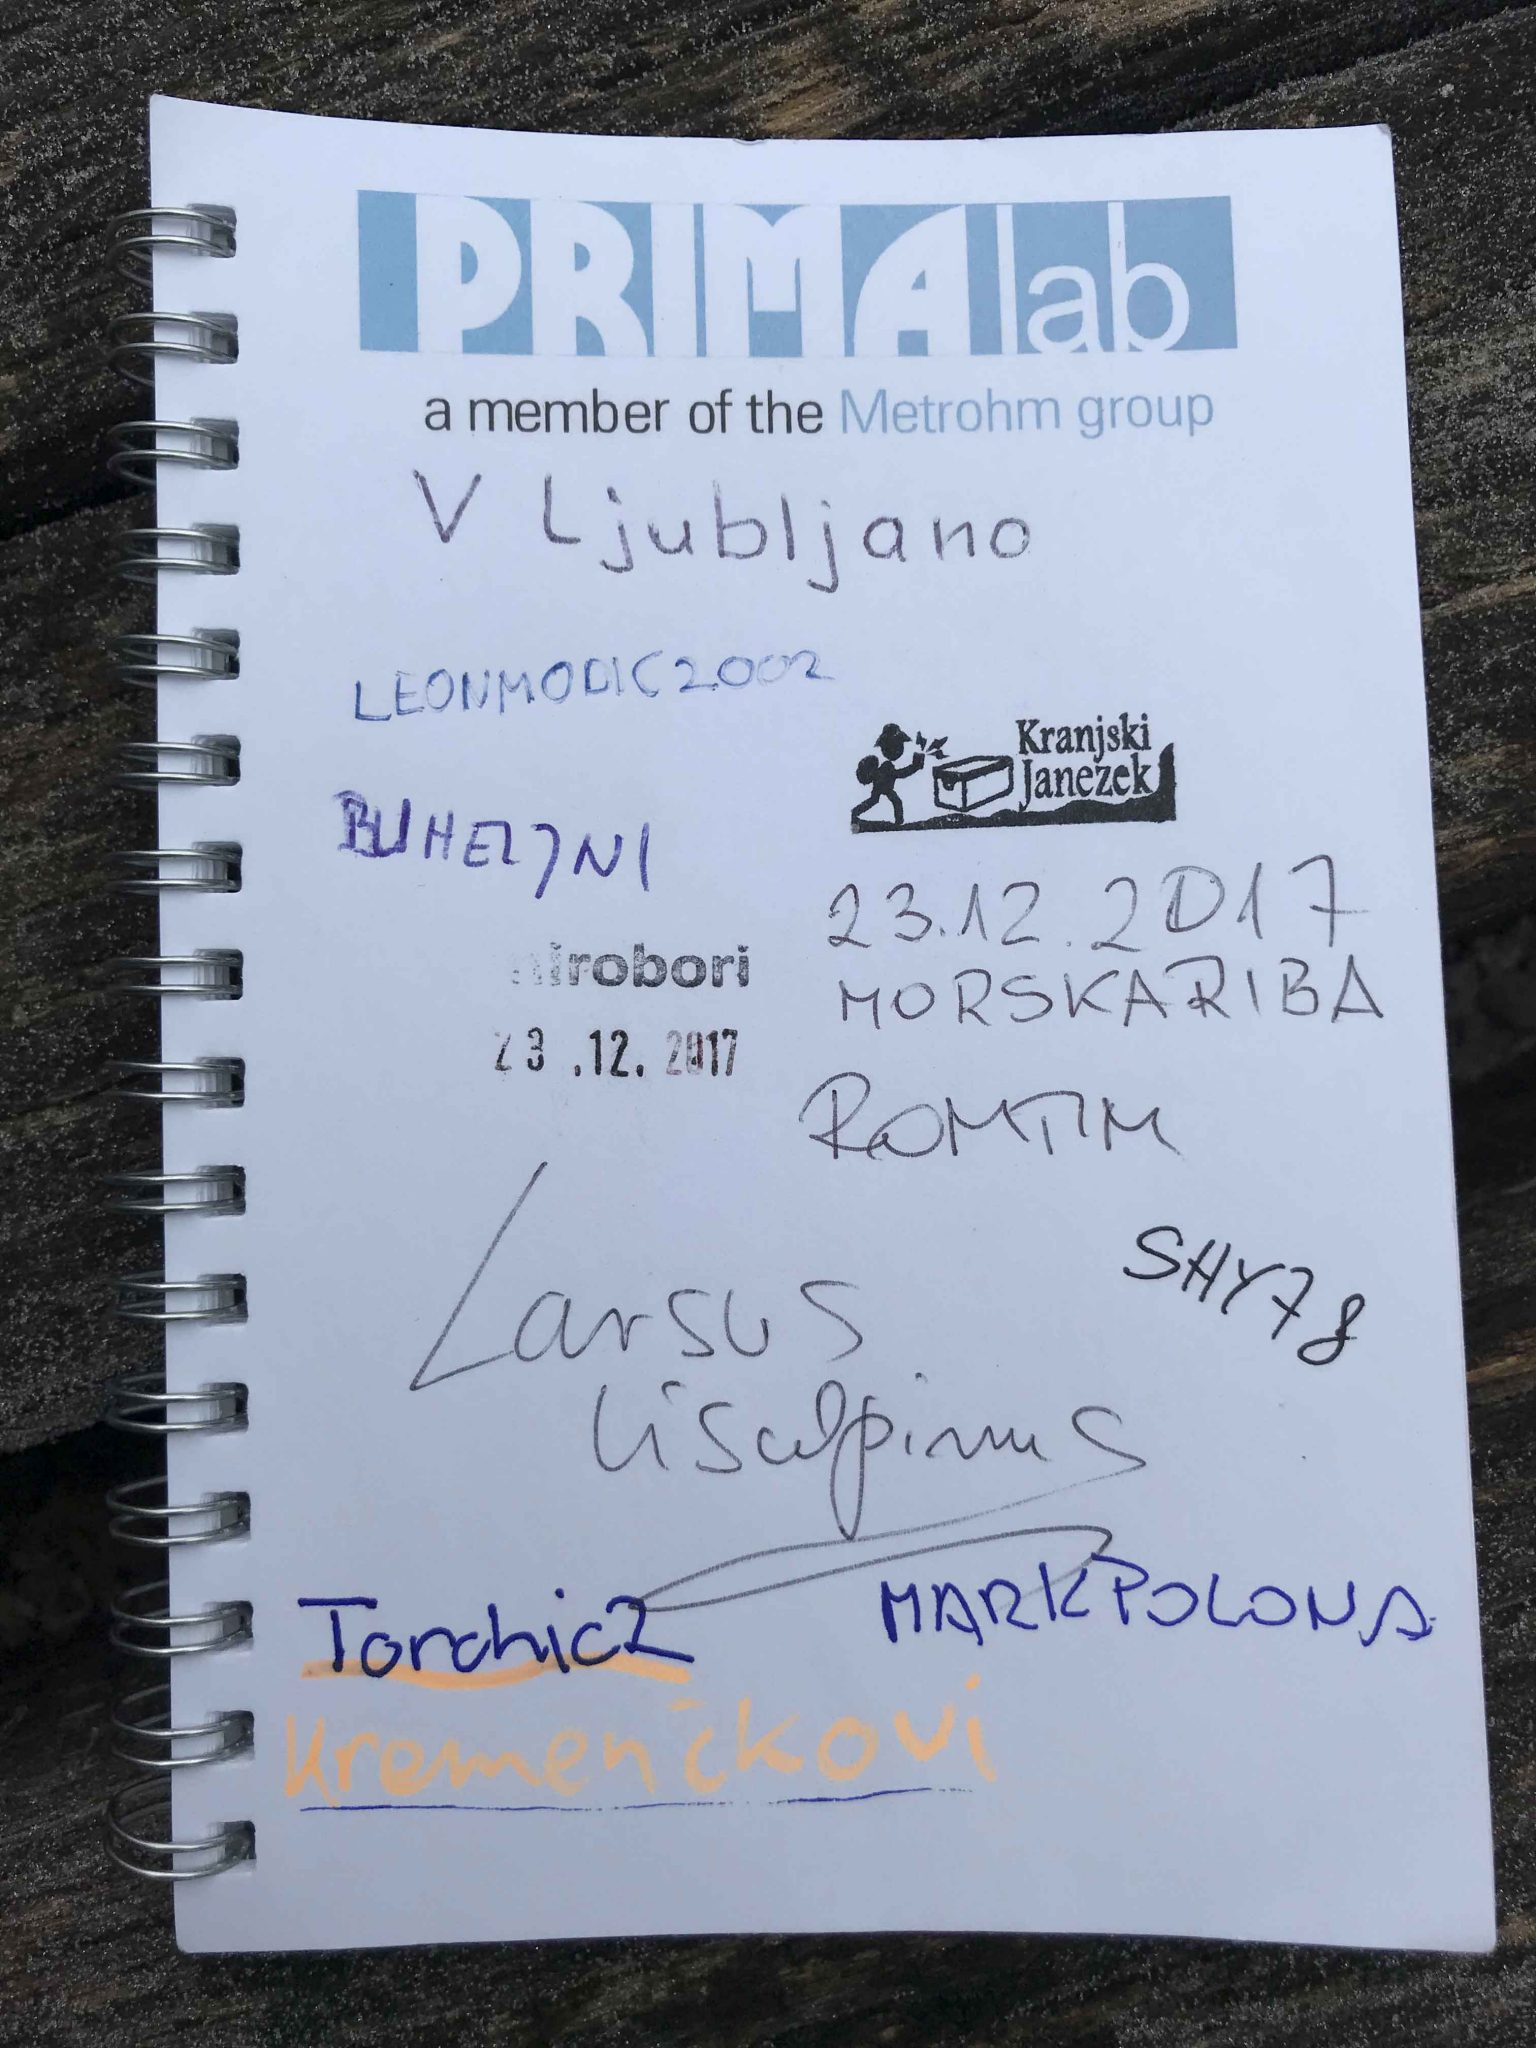 PRIMAlab
a member of the Metrohm group
V Ljubljano
LEONMODIC2002
Kranjski
Janezek
23.12.2017
MORSKARIBA
mirobori
23.12.2017
ROMTIM
SHY78
Larsus
MARKPOLONA
Torchic2
Kremenčkovi